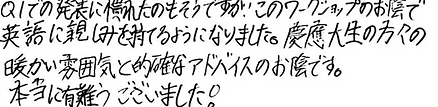 Q1での発装に慣れたのもそうですが、このワークショップのお陰で
英語に親しみを持てるようになりました。慶應大生の方々の
暖かい雰囲気と的確なアドバイスのお陰です。
本当に有難うございました!